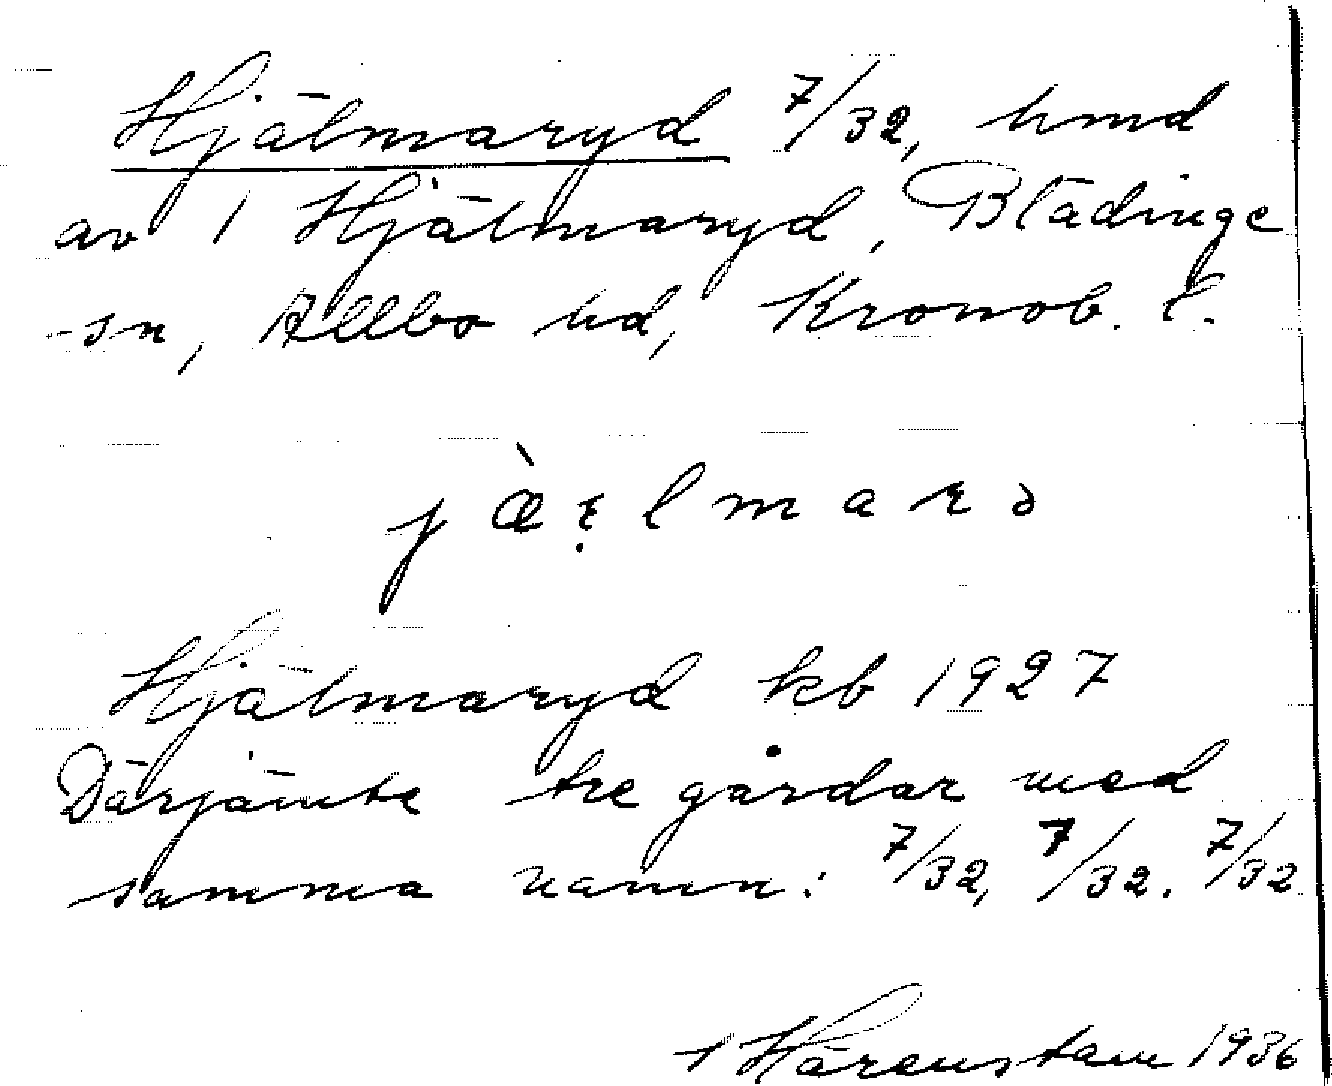 Hjälmaryd 7/32, hmd
av 1 Hjälmaryd, Blädinge
sn, Allbo hd, Kronob. l.
jæ̀ᶎlmarɜ
Hjälmaryd kb 1927
Därjämte tre gårdar med
samma namn: 7/32, 7/32. 7/32
T Härenstam 1936